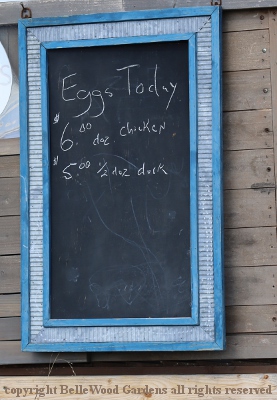 Eggs Today
$6.00 doz chicken
$5.00 1/2 doz duck
copyright BelleWood Gardens all rights reserved